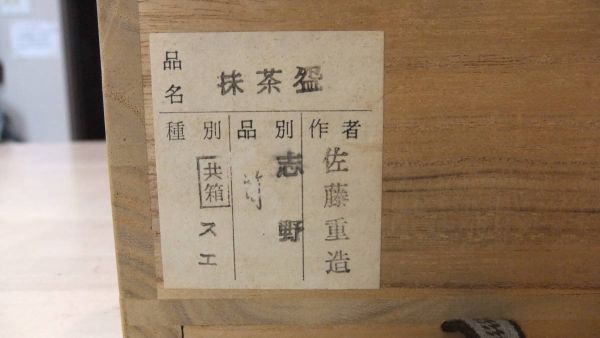 品名
抹茶盌
種別
共箱
スエ
品別
志野
作者
佐藤重造